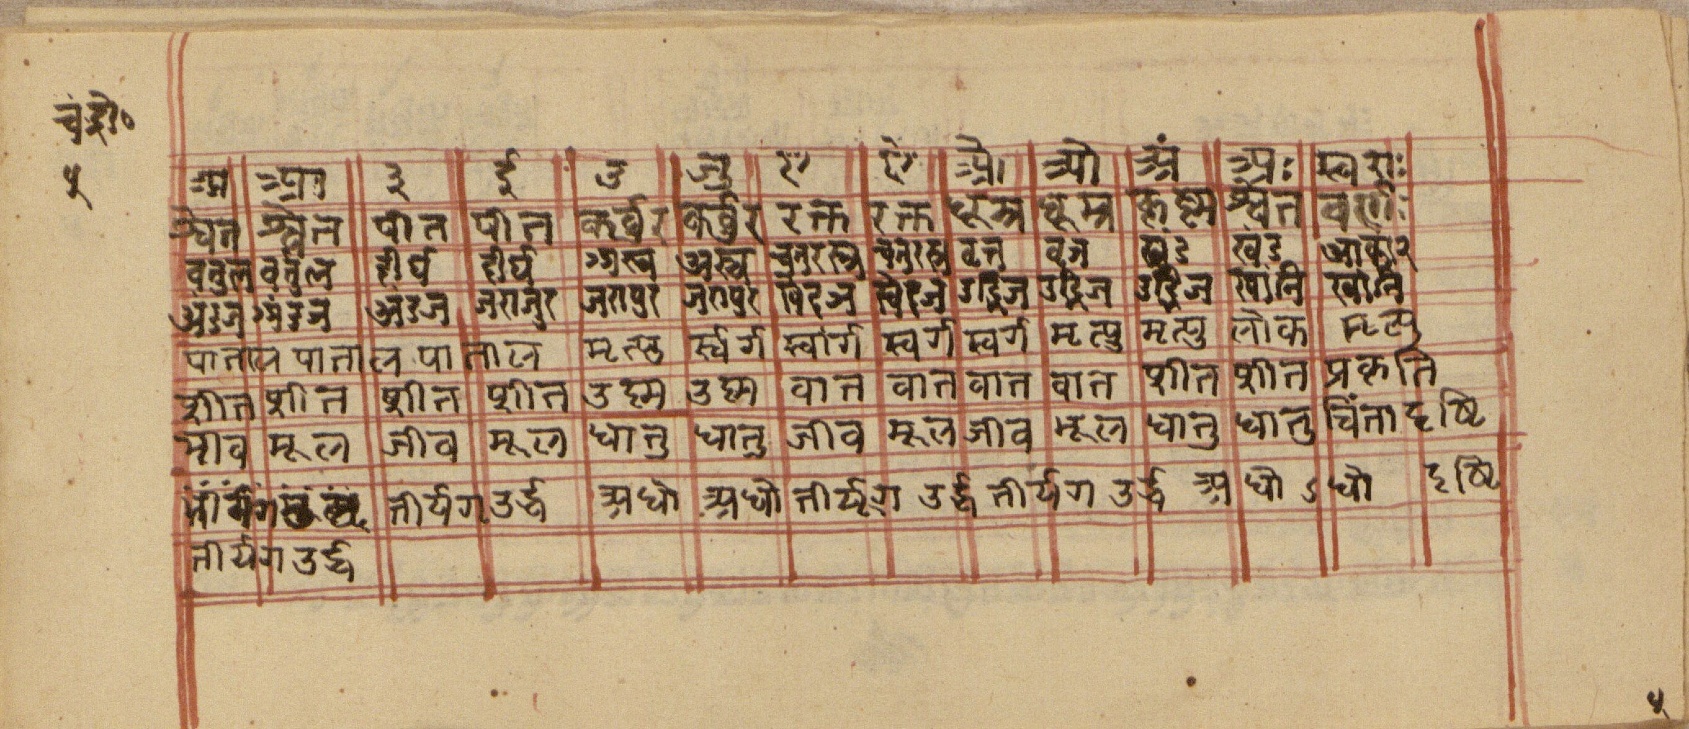 चंद्रो०
५
अ आ इ ई उ ऊ ए ऐ ओ औ अं अः स्वराः
श्वेत श्वेत पीत पीत कर्बुर कर्बुर रक्त रक्त धूम्र धूम्र कृष्म श्वेत वर्णाः
वर्तुल वर्तुल दीर्घ दीर्घ त्र्यस्त्र त्र्यस्त्र चतुरस्त्र चतुरस्त्र वृत वृत खंड खंड आकार
अंडज अंडज अंडज जरायुर जरायुर स्वेदज स्वेदज उद्भिज उद्भिज उद्भिज खांनि खांनि
पाताल पाताल पाताल मृत्यु र्स्वर्ग स्वर्ग स्वर्ग स्वर्ग मृत्यु मृत्यु लोक मृत्यु
शीत शीत शीत शीत उष्म उष्म वात वात वात वात शीत शीत प्रकृति
जीव मूल जीव मूल धातु धातु जीव मूल जीव मूल धातु धातु चिंता दृष्टि
तीर्यग उर्द्ध अधो अधो तीर्यग उर्द्ध तीर्यग उर्द्ध अधो ऽधो दृष्टि
तीर्यग उर्द्ध
५